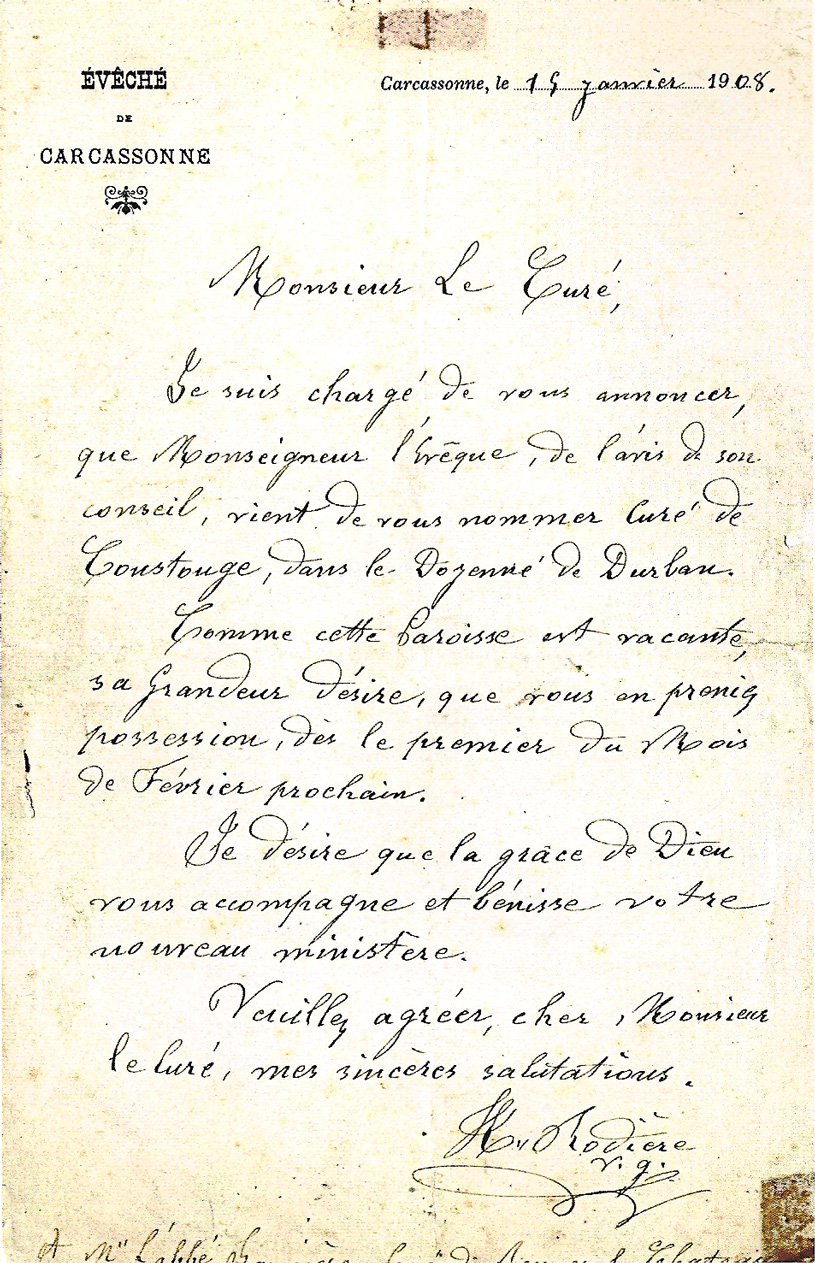 ÉVÊCHÉ
DE
CARCASSONNE
Carcassonne, le 15 janvier 1908.
Monsieur Le Curé,
Je suis chargé de vous annoncer,
que Monseigneur l'évêque, de l'avis de son
conseil, vient de vous nommer Curé de
Coustouge, dans le Doyenné de Durban.
Comme cette Paroisse est vacante,
sa Grandeur désire, que vous en preniez
possession, dès le premier du Mois
de Février prochain.
Je désire que la grâce de Dieu
vous accompagne et bénisse votre
nouveau ministère.
Veuillez agréer, cher Monsieur
le Curé, mes sincères salutations.
Rodière
v. g.
A Mr L'abbé